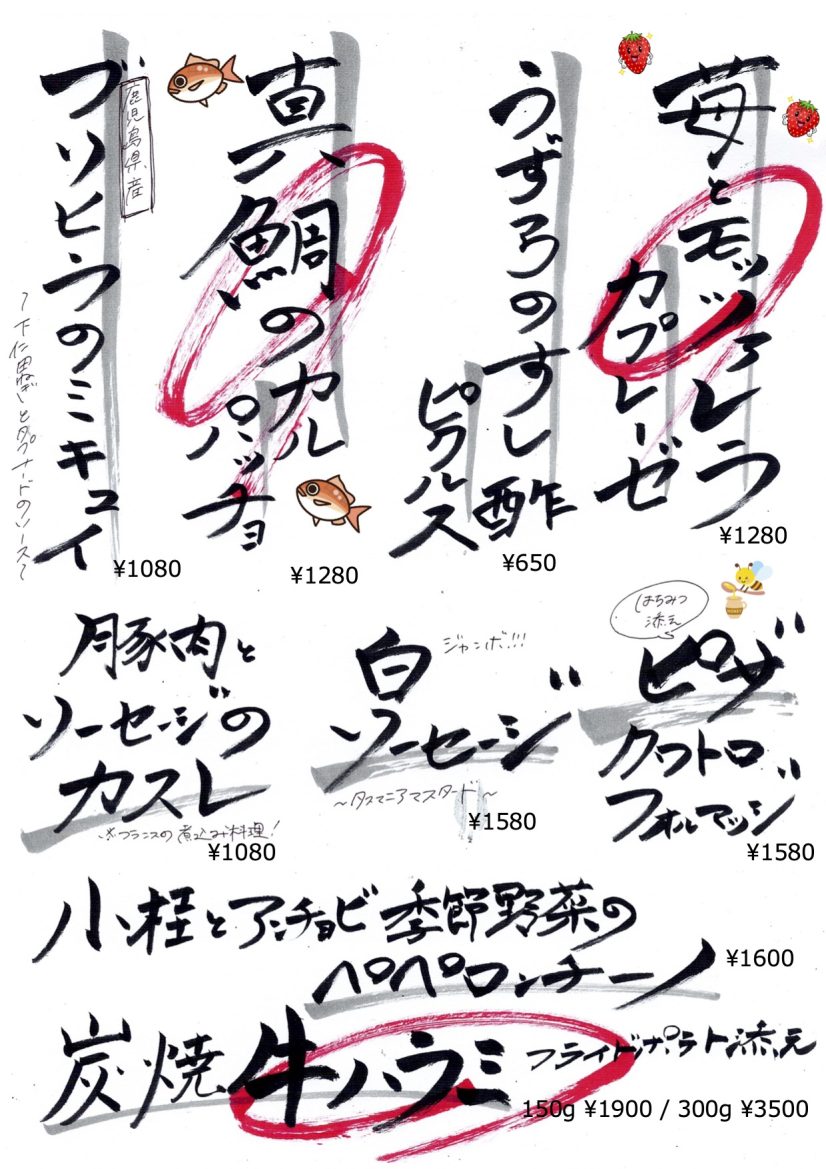 苺とモッツァレラ
カプレーゼ
¥1280
うずらのすし酢
ピクルス
¥650
真鯛のカル
パッチョ
¥1280
鹿児島県産
ブリヒラのミキュイ
~下仁田ねぎとタプナードのソース~
¥1080
豚肉と
ソーセージの
カスレ
※フランスの煮込み料理!
¥1080
白
ジャンボ!!!
ソーセージ
~タスマニアマスタード~
¥1580
はちみつ
添え
ピザ
クワトロ
フォルマッジ
¥1580
HONEY
小柱とアンチョビ季節野菜の
ペペロンチーノ
¥1600
炭焼牛ハラミ フライドポテト添え
150g ¥1900 / 300g ¥3500